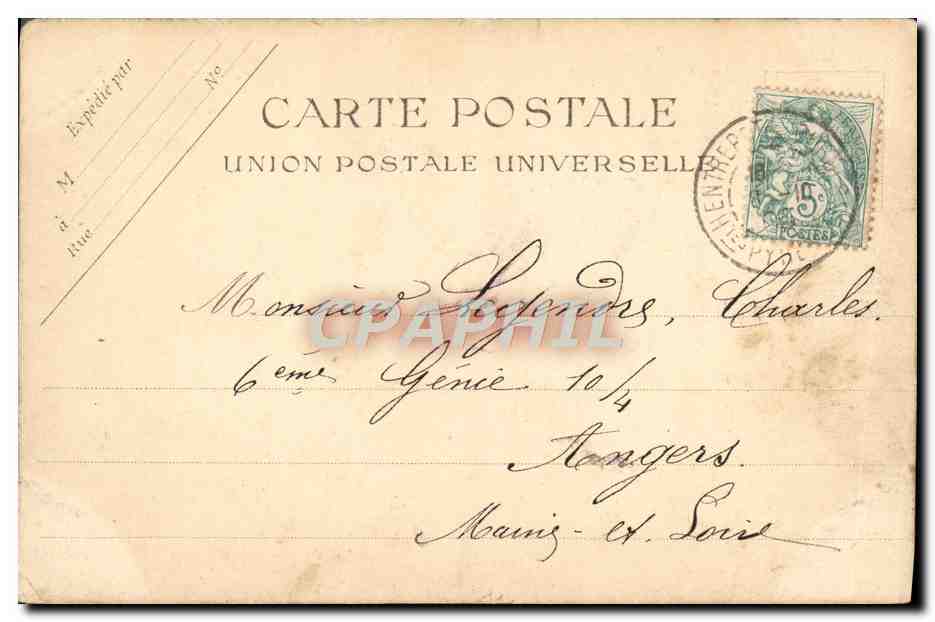 Expédié par
M
à
Rue
No
CARTE POSTALE
UNION POSTALE UNIVERSELLE
5c
POSTES
Monsieur Legendre, Charles.
6ème Génie 10/4
Angers.
Maine-et-Loire
CPAPHIL